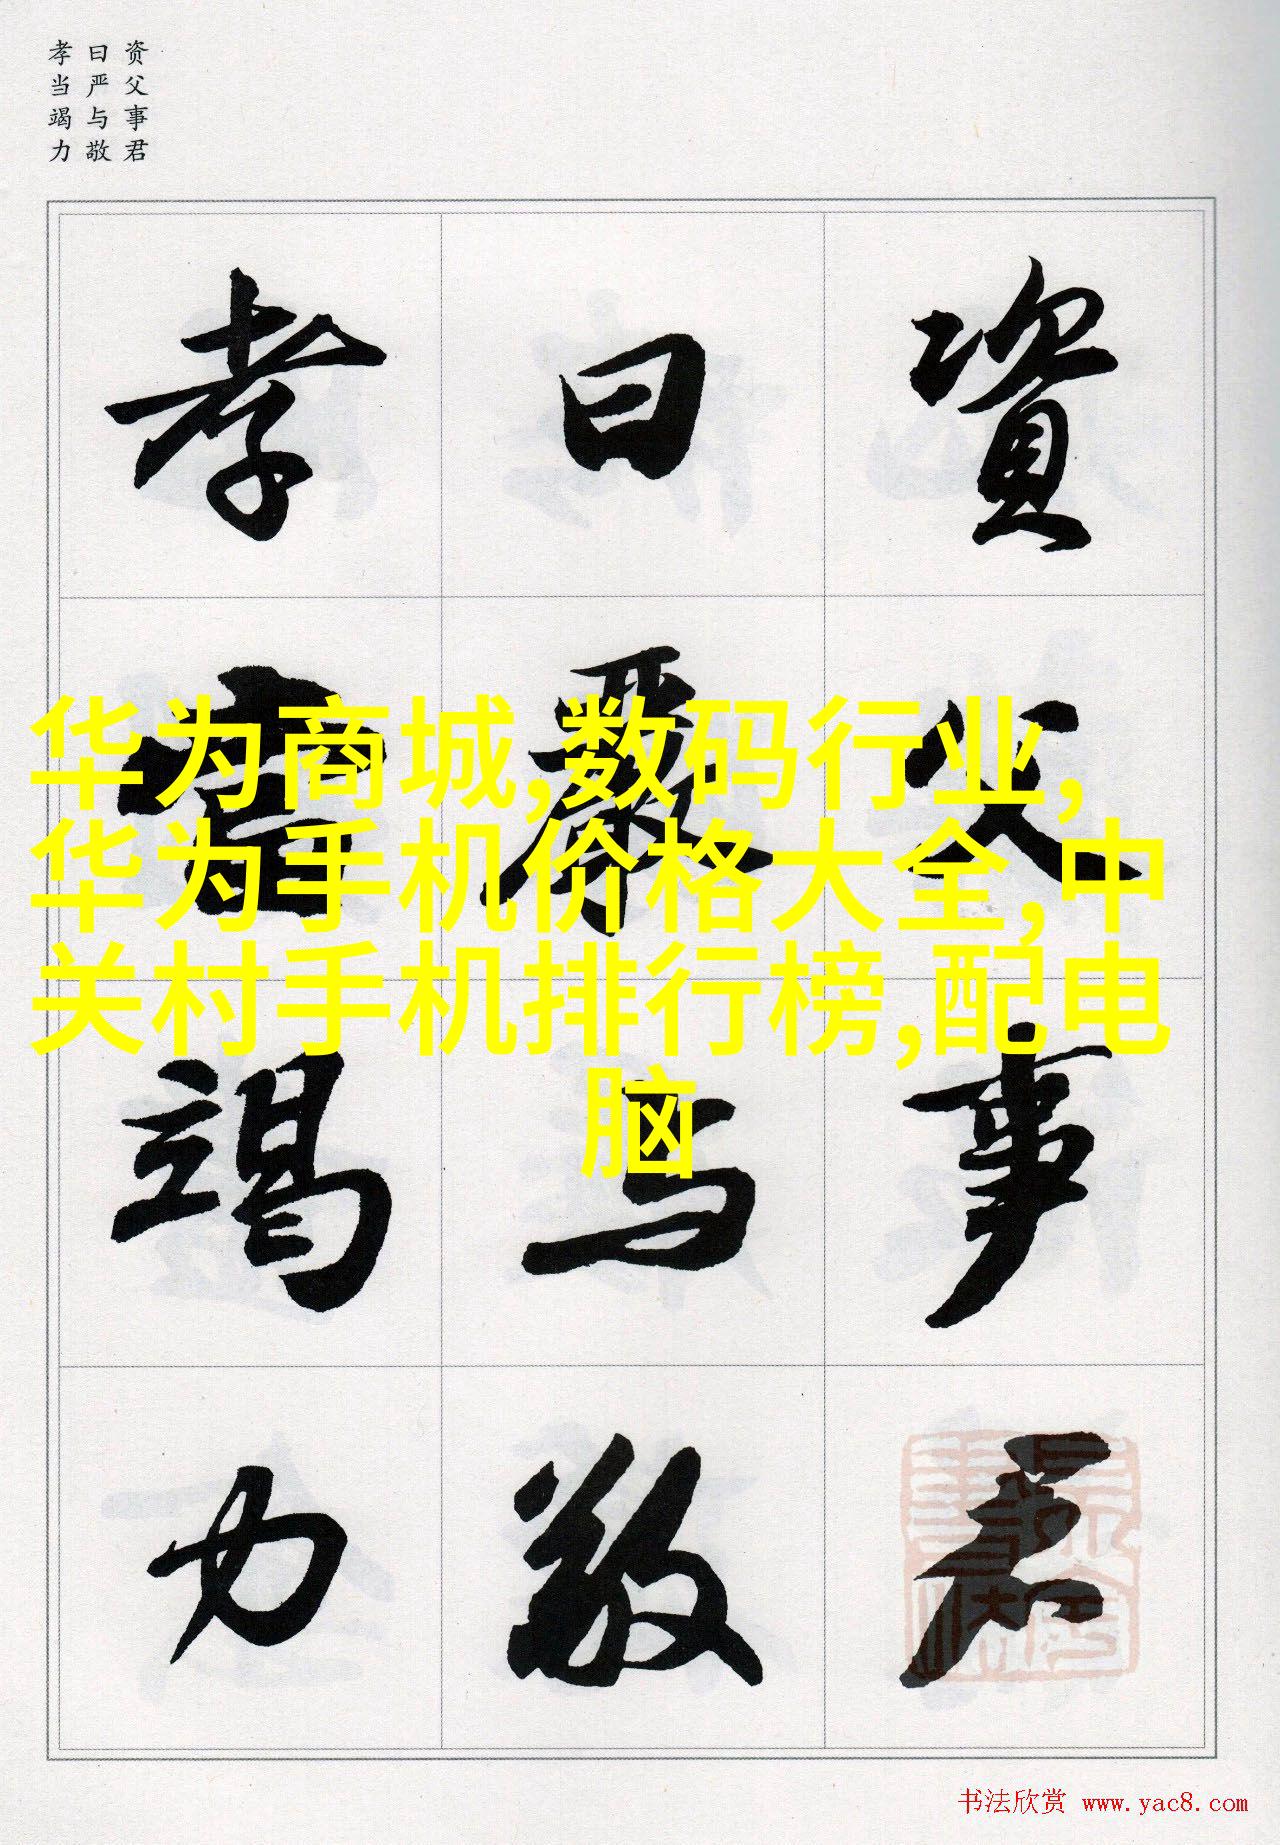 资父事君
曰严与敬
孝当竭力
資父事君
曰嚴与敬
孝當竭力
华为商城,数码行业,
华为手机价格大全,中
关村手机排行榜,配电
脑
书法欣赏 www.yac8.com